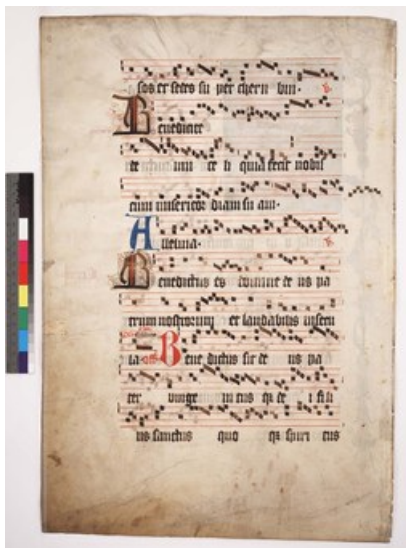 sos et sedes su per cheru bin.
Benedicite
te celum deum ce li quia fecit nobis
cum misericor diam su am.
Alleluia.
Benedictus es domine de us pa
trum nostrorum et laudabilis in secu
la Bene dictus sit de us pa
ter unige ni tus qz de i fili
us sanctus quo qz spiri tus